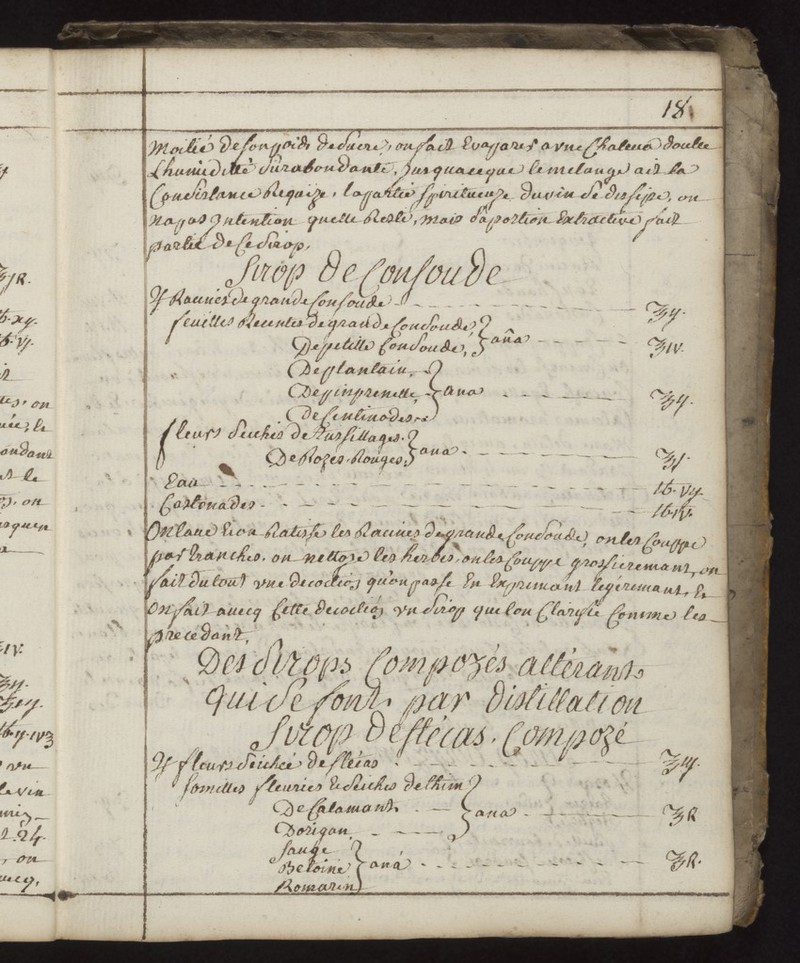 18
Moitié de son poids de sucre, on fait Evaporer a vne Chaleur doulce
Lhumidité surabondante, jusquaceque le melange ait la
Consistance Requize, la partie spiritueuze du vin se dissipe, on
na pas Intention quelle Reste, mais sa portion Extractive fait
partie de Ce sirop.
Sirop de Consoude
♃ Racines de grande Consoude ʒij.
feuilles Recentes de grande Consoude
De petitte Consoude, } ana ʒiv.
De plantain,
De pinprenelle, } ana ʒij.
De Centinodes
fleurs seiches de Tussillages.
De Rozes Rouges } ana ʒj.
Eau ℔. vij.
Castonades ℔ iv.
On lave Et on Ratisse les Racines de grande Consoude, on les Couppe
par tranches. on nettoye les herbes, on les Couppe grossieremant, on
fait du tout vne decoction quon passe En Exprimant legéremant, Et
On fait avecq Cette decoction vn sirop que lon Clarifie Comme les
precédant.
Des Sirops Compozés altérants
qui se font par distillation
Sirop de stécas. Compozé
♃ fleurs seichée de stécas ʒiij.
somittes fleuries & seiches de thim
De Calamant } ana ʒß
Dorigan
Sauge
Betoine } ana ʒß.
Romarin